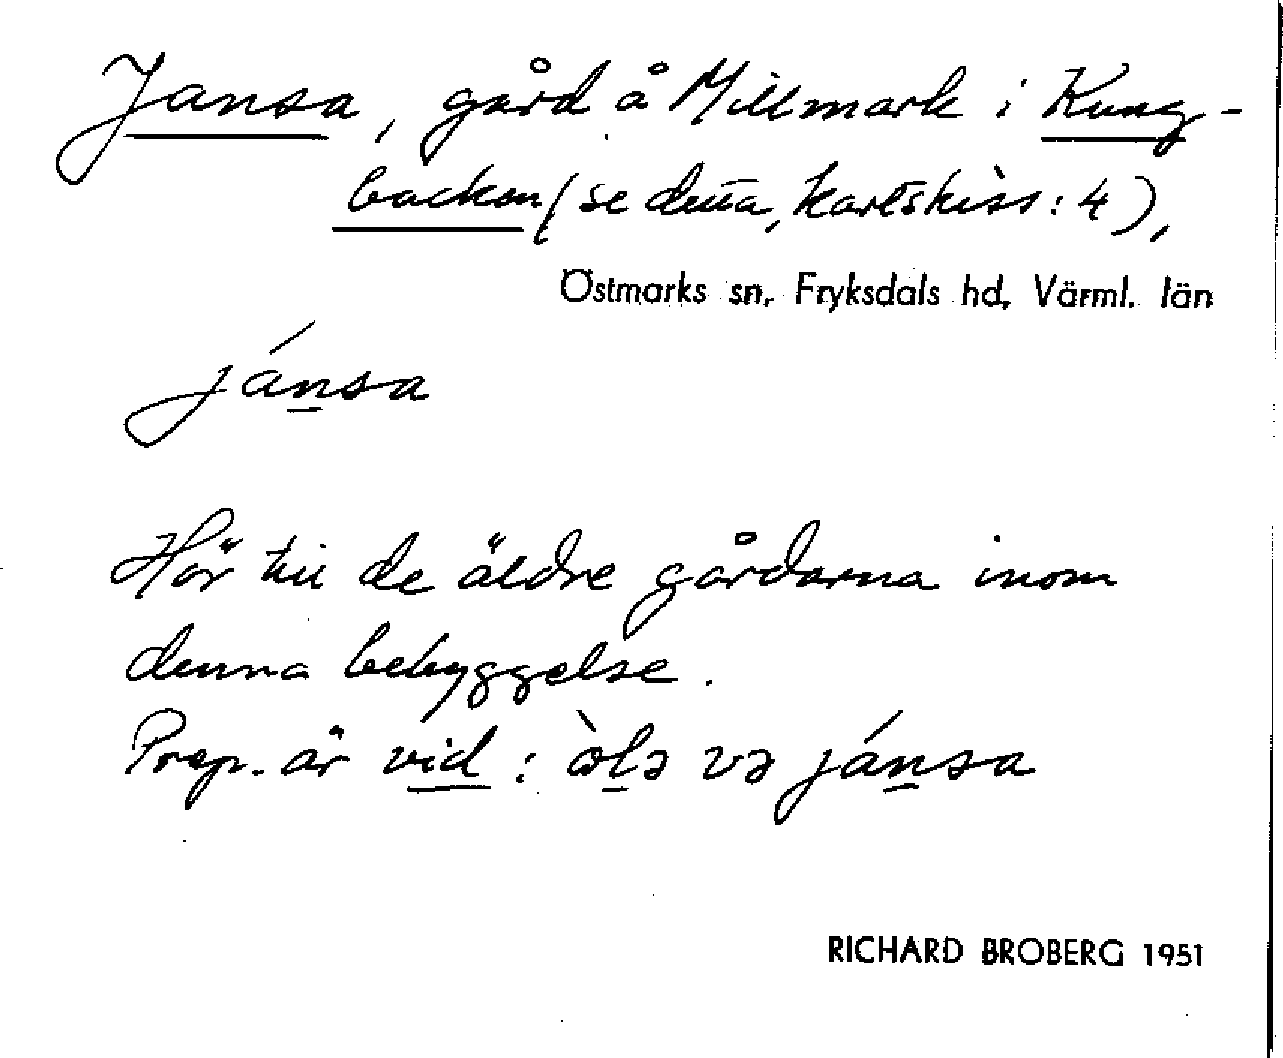 Jansa, gård å Millmark i Kung-
backen (se detta, kartskiss: 4),
Östmarks sn, Fryksdals hd, Värml. län
jánsa
Hör till de äldre gårdarna inom
denna bebyggelse.
Prep. är vid : òlə və jánsa
RICHARD BROBERG 1951